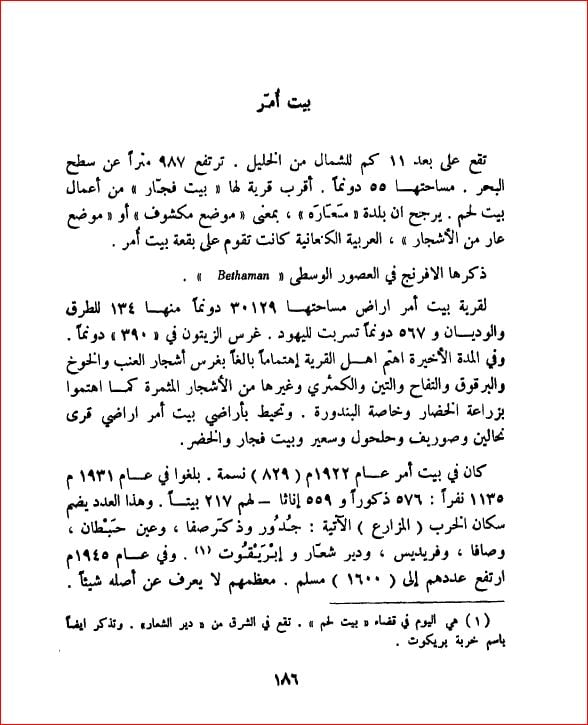 بيت أُمّر
تقع على بعد ١١ كم للشمال من الخليل . ترتفع ٩٨٧ متراً عن سطح
البحر . مساحتهـــا ٥٥ دونماً . أقرب قرية لها « بيت فجّار » من أعمال
بيت لحم . يرجح ان بلدة « مَعَارَه » ، بمعنى « موضع مكشوف » أو « موضع
عار من الأشجار » ، العربية الكنعانية كانت تقوم على بقعة بيت أمر .
ذكرها الافرنج في العصور الوسطى « Bethaman » .
لقرية بيت أمر اراض مساحتهـــا ٣٠١٢٩ دونماً منهــا ١٣٤ للطرق
والوديــان و ٥٦٧ دونماً تسربت لليهود . غرس الزيتون في « ٣٩٠ » دونماً .
وفي المدة الأخيرة اهتم اهــل القرية إهتماماً بالغاً بغرس أشجار العنب والخوخ
والبرقوق والتفاح والتين والكمثري وغيرها من الأشجار المثمرة كمــا اهتموا
بزراعة الخضار وخاصة البندورة . وتحيط بأراضي بيت أمر اراضي قرى
نحالين وصوريف وحلحول وسعير وبيت فجار والخضر.
كان في بيت أمر عــام ١٩٢٢م ( ٨٢٩ ) نسمة . بلغوا في عــام ١٩٣١ م
١١٣٥ نفراً : ٥٧٦ ذكوراً و ٥٥٩ إناثاً – لهم ٢١٧ بيتــاً . وهذا العدد يضم
سكان الخرب ( المزارع ) الآتية : جُدُور وذكرصفا ، وعين حَبَطان ،
وصافا ، وفريديس ، ودير شعّار و إبْرَيْقُوت (١) . وفي عــام ١٩٤٥م
ارتفع عددهم إلى ( ١٦٠٠ ) مسلم . معظمهم لا يعرف عن أصله شيئاً .
( ١ ) هي اليوم في قضاء « بيت لحم » . تقع في الشرق من « دير الشعار» . وتذكر ايضاً
باسم خربة بريكوت .
١٨٦